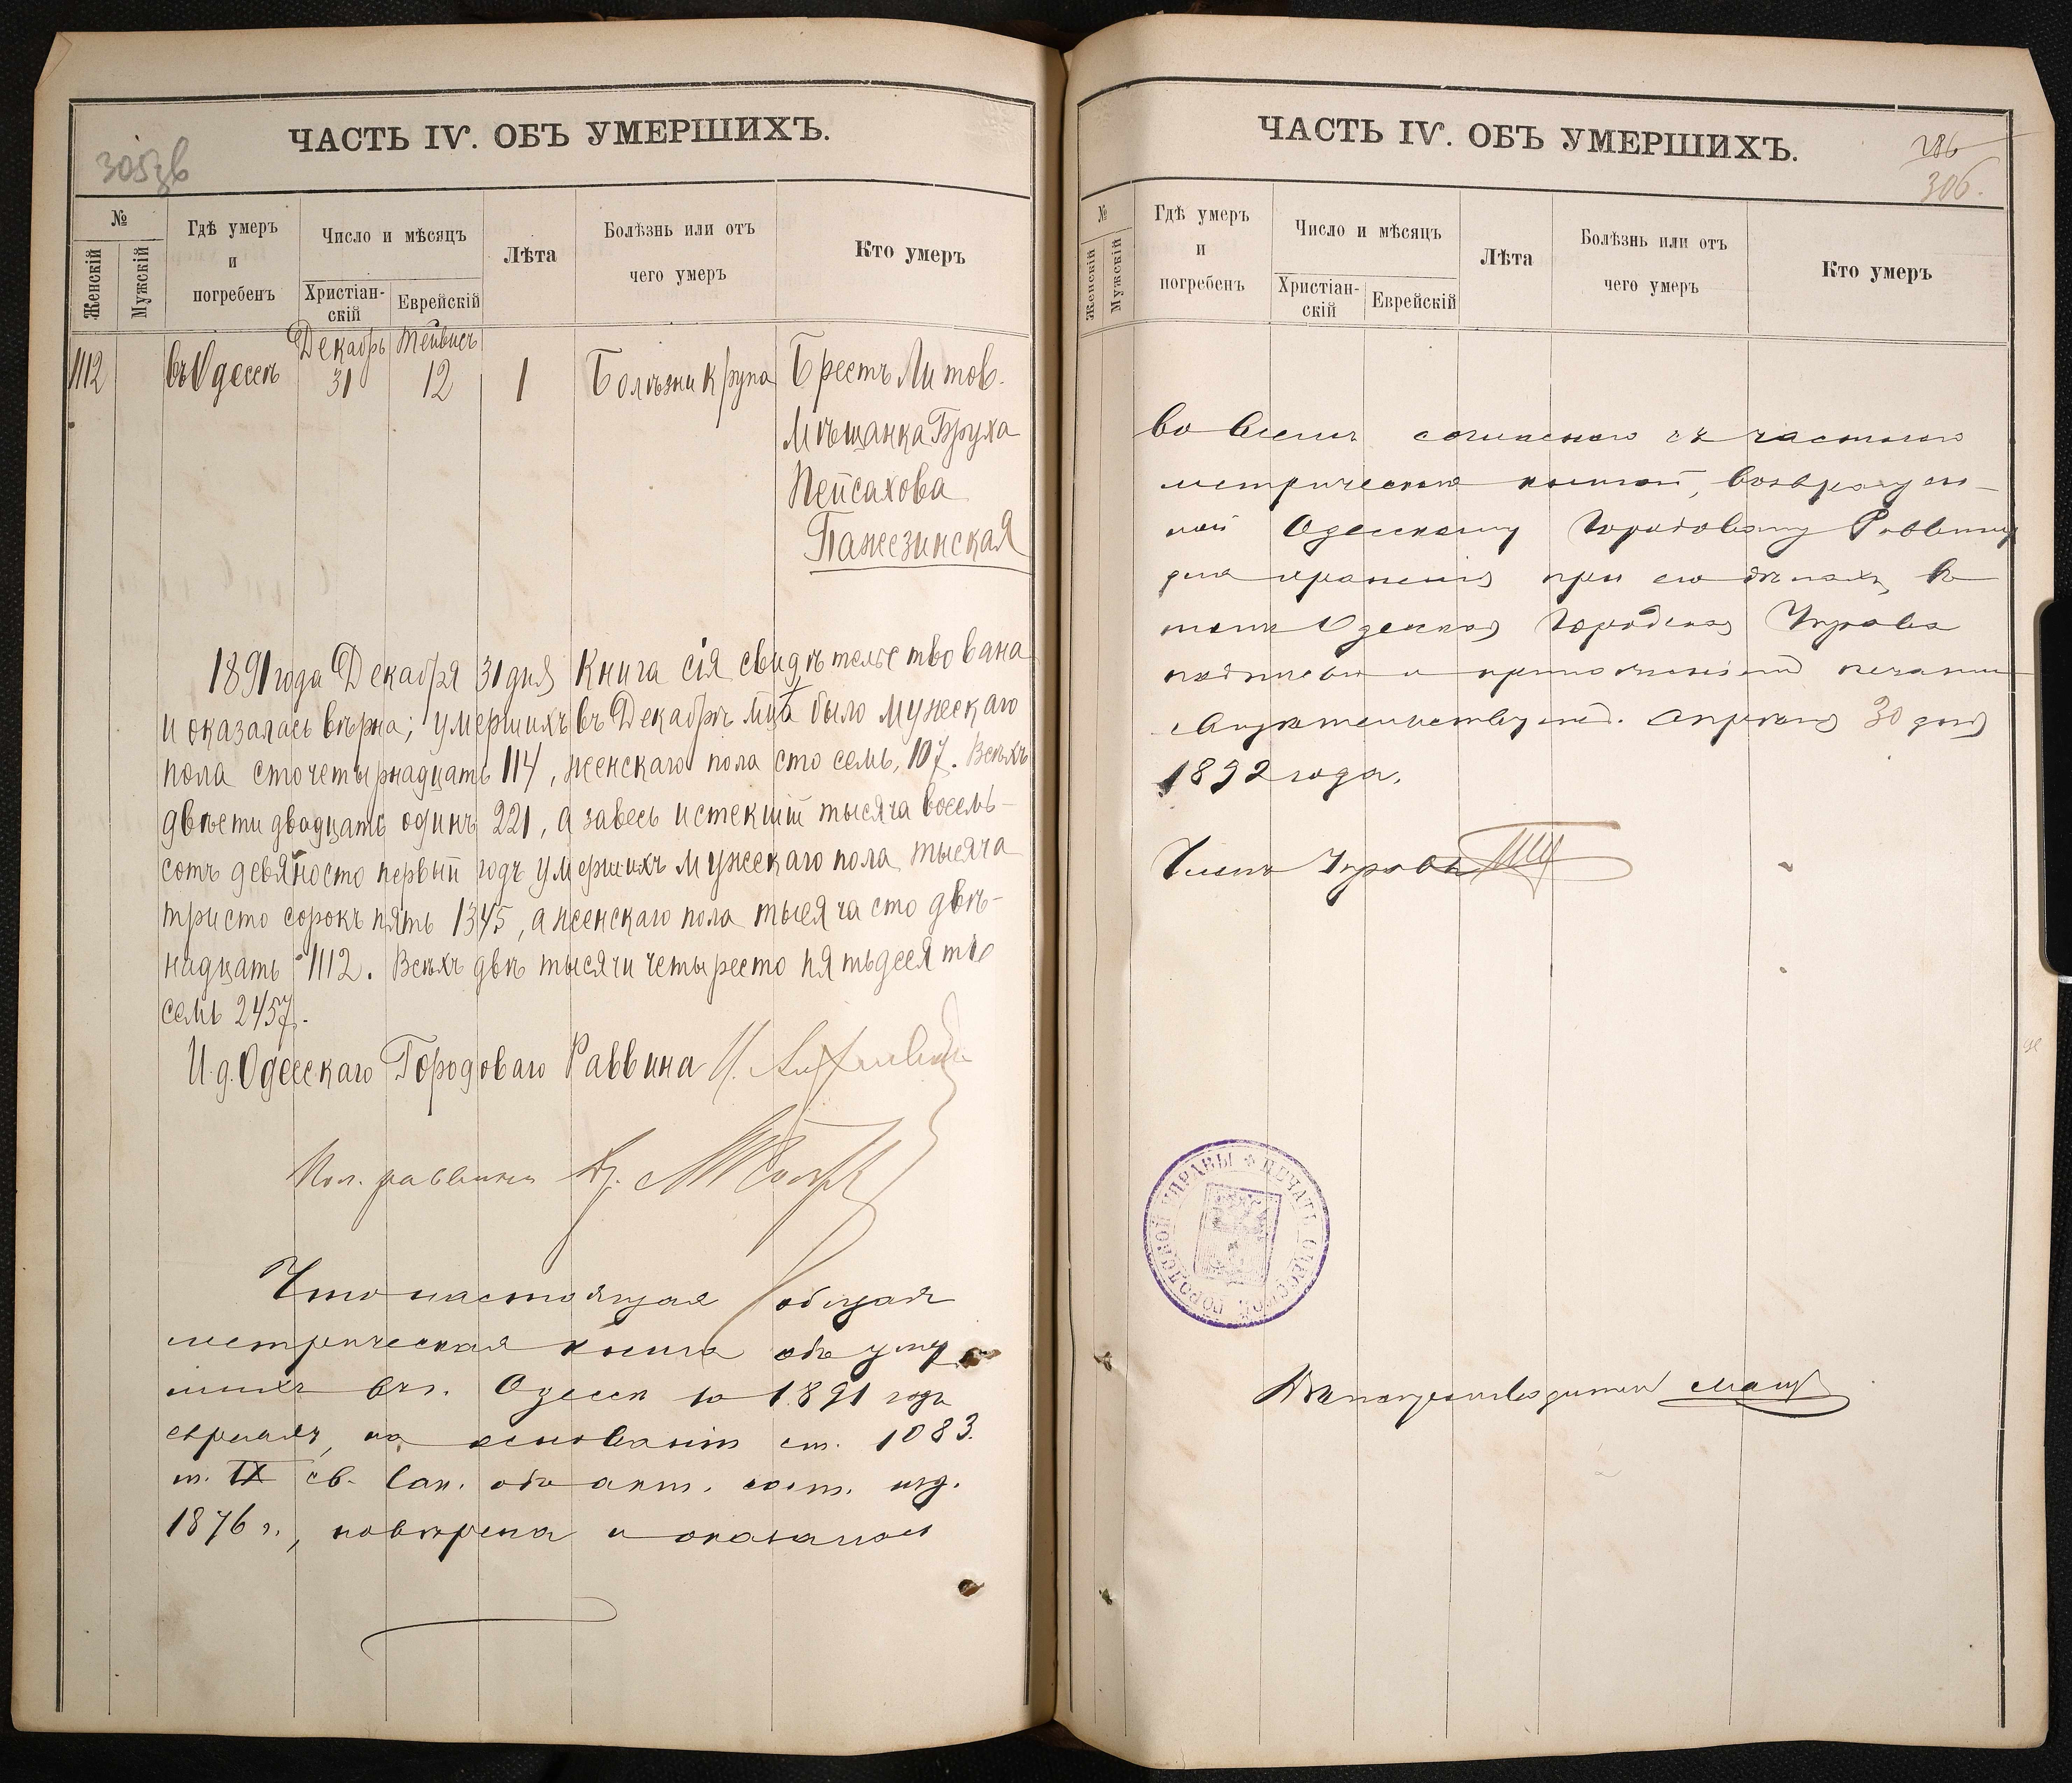 305зв
ЧАСТЬ IV. ОБЪ УМЕРШИХЪ.
№
Женскій
Мужскій
Гдѣ умеръ
и
погребенъ
Число и мѣсяцъ
Христіан-
скій
Еврейскій
Лѣта
Болѣзнь или отъ
чего умеръ
Кто умеръ
Декабрь Тейвисъ
112 въ Одессѣ 31 12 1 Болѣзни крупа Брестъ Литов.
Мѣщанка Бруха
Пейсахова
Пажезинская
1891 года Декабря 31 дня Книга сія свидѣтельствована
и оказалась вѣрна; умершихъ въ Декабрѣ м-цѣ было мужескаго
пола сто четырнадцать 114, женскаго пола сто семь, 107. Всѣхъ
двѣсти двадцать одинъ 221, а за весь истекшій тысяча восемь-
сотъ девяносто первый годъ умершихъ мужескаго пола тысяча
тристо сорокъ пять 1345, а женскаго пола тысяча сто двѣ-
надцать 1112. Всѣхъ двѣ тысячи четыресто пятьдесятъ
семь 2457.
И.д. Одесскаго Городоваго Раввина
Пом. раввина Др.
Что настоящая общая
метрическая книга объ умер
шихъ въ г. Одессѣ за 1891 годъ
евреяхъ, на основаніи ст. 1083
т. IX св. Зак. объ акт. сост. изд.
1876 г., повѣрена и оказалась
ЧАСТЬ IV. ОБЪ УМЕРШИХЪ.
286
306.
№
Женскій
Мужскій
Гдѣ умеръ
и
погребенъ
Число и мѣсяцъ
Христіан-
скій
Еврейскій
Лѣта
Болѣзнь или отъ
чего умеръ
Кто умеръ
во всемъ согласною съ частною
метрическою книгой, возвращен-
ной Одесскому Городовому Раввину
для храненія при его дѣлахъ, въ
томъ Одесская Городская Управа
подписью и приложеніемъ печати
свидѣтельствуетъ. Апрѣля 30 дня
1892 года.
Членъ Управы
ПЕЧАТЬ ОДЕССКОЙ ГОРОДСКОЙ УПРАВЫ
Дѣлопроизводитель